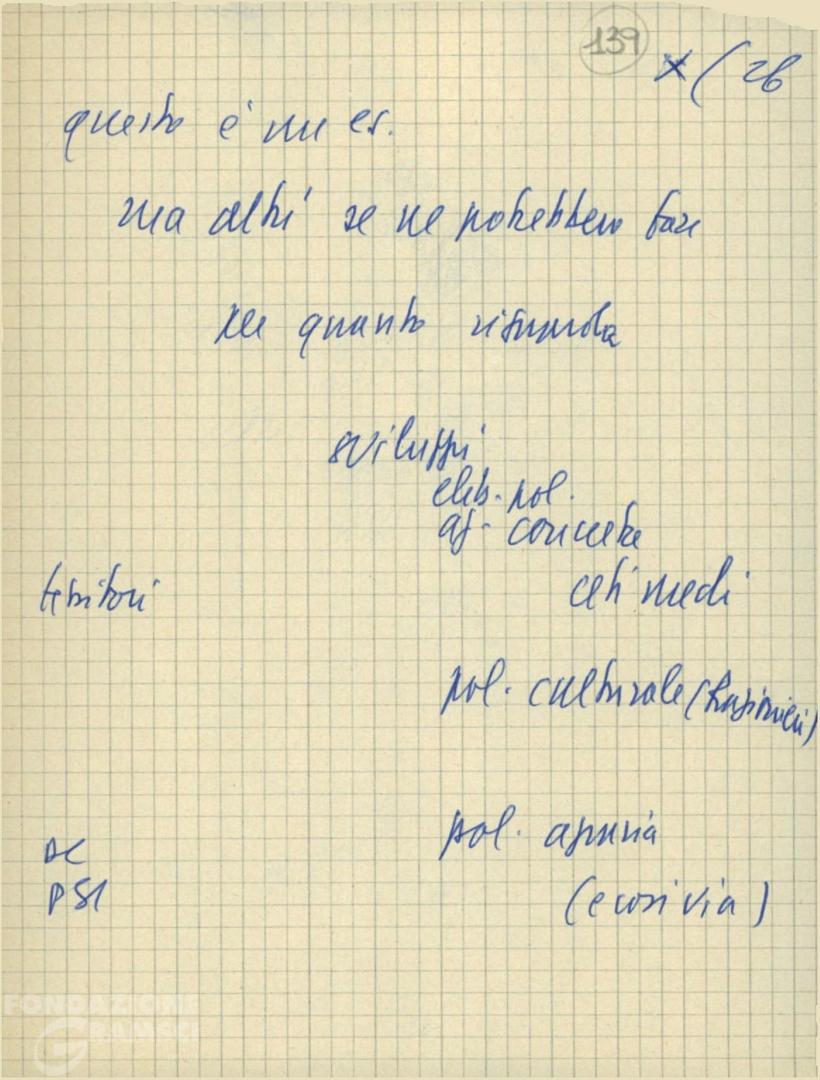 139
x ( 26
questo è un es.
ma altri se ne potrebbero fare
per quanto riguarda
sviluppi
elab. pol.
concrete
territori
ceti medi
pol. culturale
pol. agraria
DC
PSI
(e così via)
FONDAZIONE
GRAMSCI